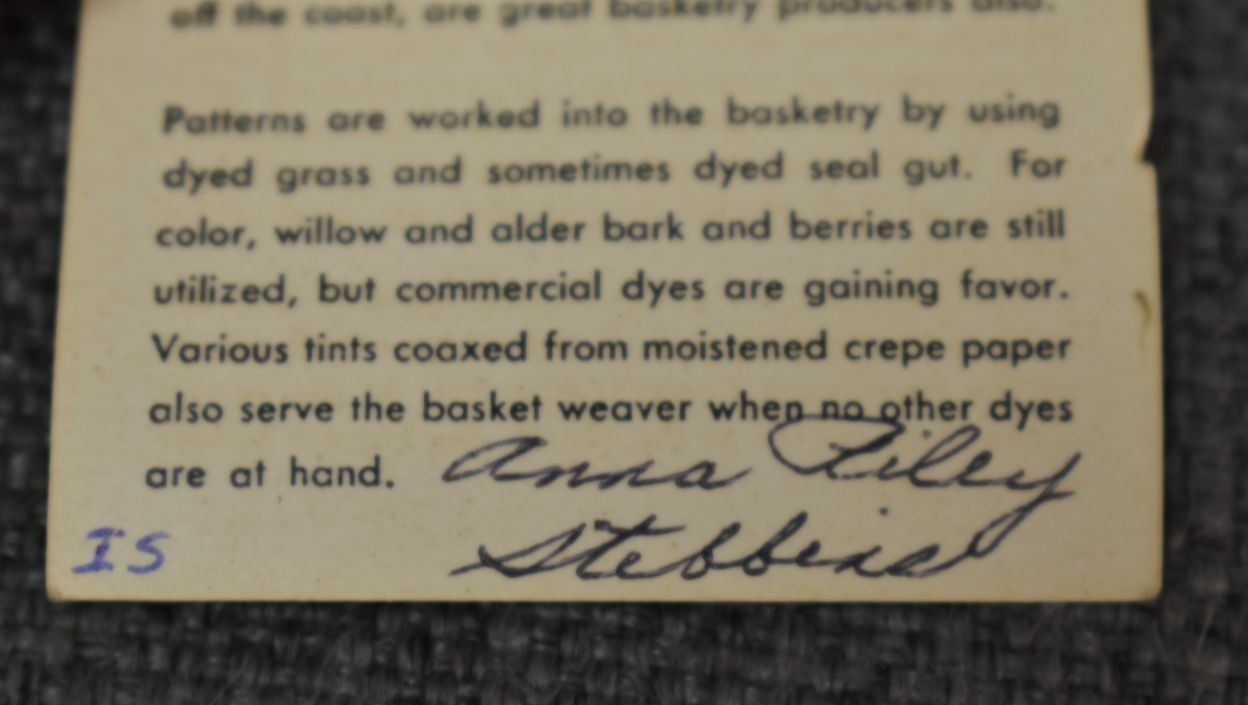 off the coast, are great basketry producers also.
Patterns are worked into the basketry by using
dyed grass and sometimes dyed seal gut. For
color, willow and alder bark and berries are still
utilized, but commercial dyes are gaining favor.
Various tints coaxed from moistened crepe paper
also serve the basket weaver when no other dyes
are at hand. Anna Riley
Stebbins
IS